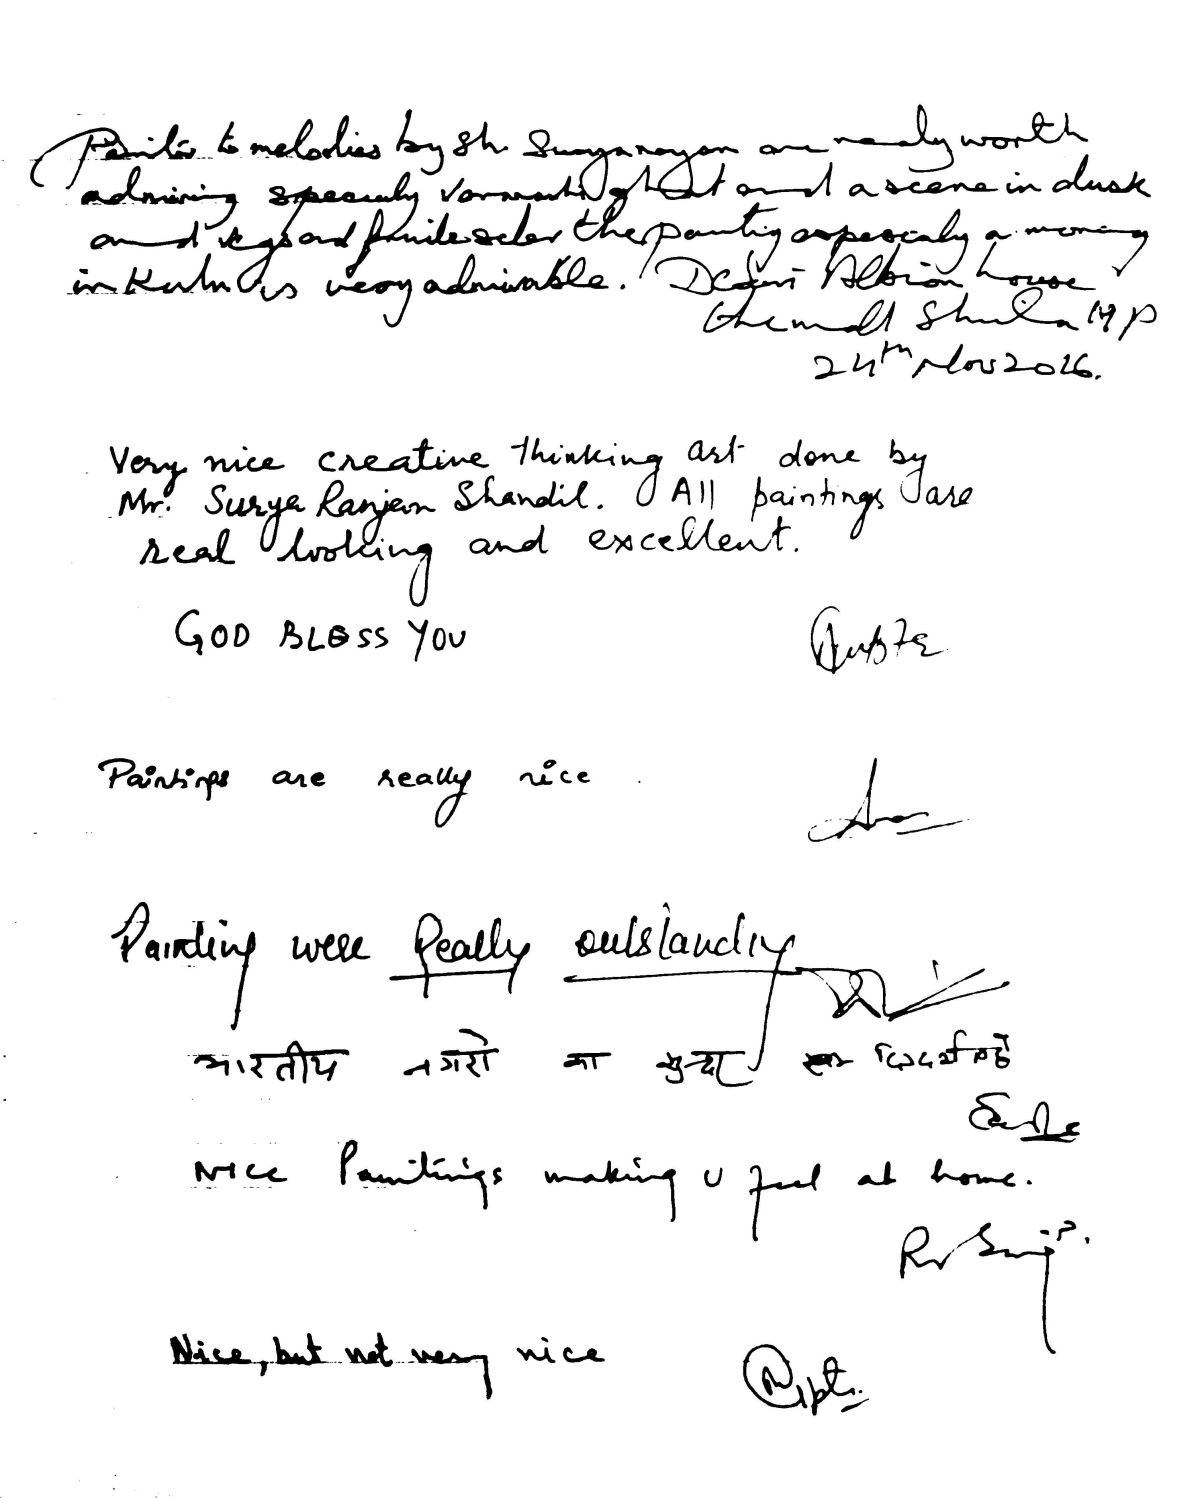 to melodies by Sh. are really worth
admiring and a scene in dusk
and the especialy a morning
in Kulu is very admirable. Albion house
the mall Shimla H P
24th Nov 2016.
Very nice creative thinking art done by
Mr. Surya Ranjan Shandil. All paintings are
real looking and excellent.
GOD BLESS YOU
Paintings are really nice
Painting were Really outstanding
भारतीय नगरो का सुन्दर
Nice Paintings making u feel at home.
Nice, but not very nice